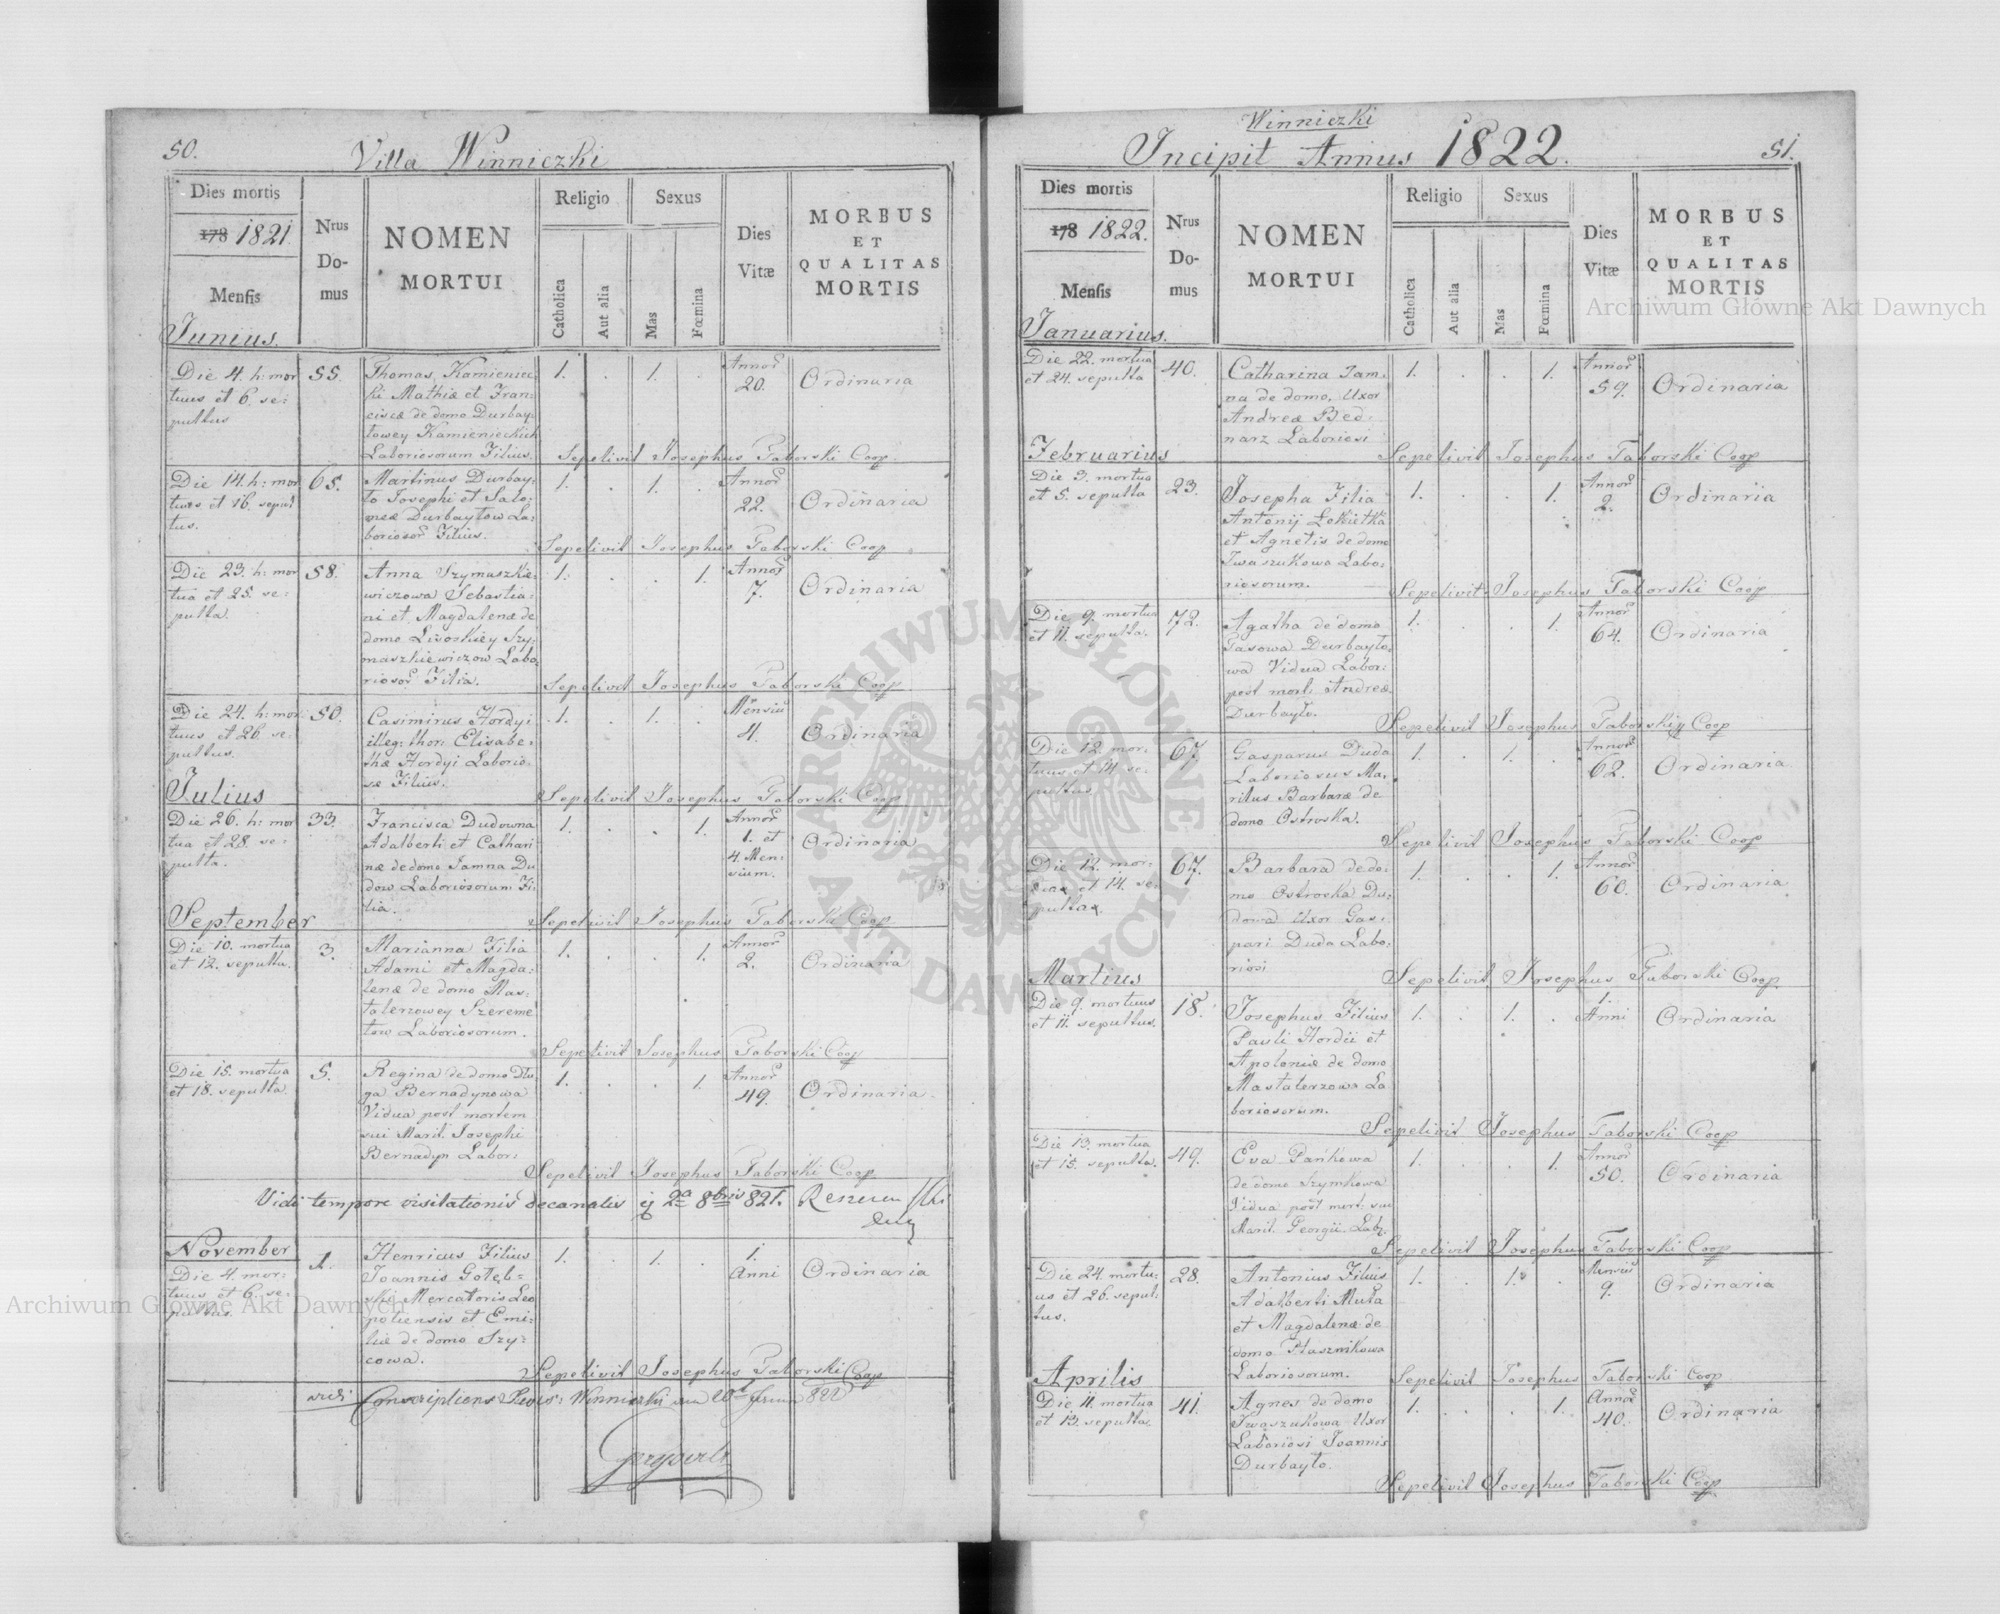 50.
Villa Winniczki
Dies mortis
178 1821.
Mensis
Nrus
Do-
mus
NOMEN
MORTUI
Religio
Catholica
Aut alia
Sexus
Mas
Fœmina
Dies
Vitæ
MORBUS
ET
QUALITAS
MORTIS
Junius.
Die 4. h: mor
tuus et 6. se:
pultus
55.
Thomas Kamieniec
ki Mathiæ et Fran:
ciscæ de domo Durbay:
lowey Kamienieckich
Laboriosorum Filius.
1. . 1. .
Annor
20.
Ordinaria
Sepelivit Josephus Taborski Coop.
Die 14. h: mor
tuus et 16. sepul
tus.
65.
Martinus Durbay:
ło Josephi et Salo:
meæ Durbayłow La:
boriosor Filius.
1. . 1. .
Annor
22.
Ordinaria
Sepelivit Josephus Taborski Coop
Die 23. h: mor
tua et 25. se:
pulta.
58.
Anna Szymaszkie:
wiczowa Sebastia:
ni et Magdalenæ de
domo Liwoskiey Szy:
maszkiewiczow Labo:
riosor Filia.
1. . . 1.
Annor
7.
Ordinaria
Sepelivit Josephus Taborski Coop
Die 24. h: mor
tuus et 26. se:
pultus.
50.
Casimirus Hordyi
illeg: thor: Elisabe:
thæ Hordyi Laborio:
sæ Filius.
1. . 1. .
Mensiū
4.
Ordinaria
Sepelivit Josephus Taborski Coop
Julius
Die 26. h: mor
tua et 28. se:
pulta.
33.
Francisca Dudowna
Adalberti et Cathari
næ de domo Jamna Du
dow Laboriosorum Fi:
lia.
1. . . 1.
Annor
1. et
4. Men:
sium.
Ordinaria
Sepelivit Josephus Taborski Coop
September
Die 10. mortua
et 12. sepulta.
3.
Marianna Filia
Adami et Magda:
lenæ de domo Mas:
talerzowey Szereme
tow Laboriosorum.
1. . . 1.
Annor
2.
Ordinaria
Sepelivit Josephus Taborski Coop
Die 15. mortua
et 18. sepulta.
5.
Regina de domo Dłu:
ga Bernadynowa
Vidua post mortem
sui Marit. Josephi
Bernadyn Labor:
1. . . 1.
Annor
49.
Ordinaria.
Sepelivit Josephus Taborski Coop
Vidi tempore visitationis decanalis 8bris 821.
November
Die 4. mor:
tuus et 6. se:
pultus.
1.
Henricus Filius
Joannis Gołęb=
ski Mercatoris Leo
poliensis et Emi:
liæ de domo Szy:
cowa.
1. . 1. .
1.
Anni
Ordinaria
Sepelivit Josephus Taborski Coop
Winniczki
Incipit Annus 1822.
51.
Dies mortis
178 1822.
Mensis
Nrus
Do-
mus
NOMEN
MORTUI
Religio
Catholica
Aut alia
Sexus
Mas
Fœmina
Dies
Vitæ
MORBUS
ET
QUALITAS
MORTIS
Januarius.
Die 22. mortua
et 24. sepulta
40.
Catharina Jam:
na de domo, Uxor
Andreæ Bed:
narz Laboriosi
1. . . 1.
Annor
59.
Ordinaria
Sepelivit Josephus Taborski Coop
Februarius
Die 3. mortua
et 5. sepulta
23.
Josepha Filia
Antonij Łokietka
et Agnetis de domo
Iwaszukowa Labo:
riosorum.
1. . . 1.
Annor
2.
Ordinaria
Sepelivit Josephus Taborski Coop
Die 9. mortua
et 11. sepulta.
72.
Agatha de domo
Pasowa Durbayło:
wa Vidua Labor:
post mort: Andreæ
Durbayło.
1. . . 1.
Annor
64.
Ordinaria
Sepelivit Josephus Taborskiy Coop
Die 12. mor:
tuus et 14. se:
pultus
67.
Gasparus Duda
Laboriosus Ma:
ritus Barbaræ de
domo Ostroska.
1. . 1. .
Annor
62.
Ordinaria
Sepelivit Josephus Taborski Coop
Die 12. mor:
tua et 14. se:
pulta.
67.
Barbara de do:
mo Ostrocka Du:
dowa Uxor Gas:
pari Duda Labo:
riosi
1. . . 1.
Annor
60.
Ordinaria
Sepelivit Josephus Taborski Coop
Martius
Die 9. mortuus
et 11. sepultus.
18.
Josephus Filius
Pauli Hordii et
Apoloniæ de domo
Mastalerzowa La
boriosorum.
1. . 1. .
1.
Anni
Ordinaria
Sepelivit Josephus Taborski Coop
Die 13. mortua
et 15. sepulta.
49.
Eva Pańkowa
de domo Szymkowa
Vidua post mort: sui
Marit. Georgii Lab:
1. . . 1.
Annor
50.
Ordinaria
Sepelivit Josephus Taborski Coop
Die 24. mortu:
us et 26. sepul:
tus.
28.
Antonius Filius
Adalberti Muła
et Magdalenæ de
domo Ptasznikowa
Laboriosorum.
1. . 1. .
Mensiū
9.
Ordinaria
Sepelivit Josephus Taborski Coop
Aprilis
Die 11. mortua
et 13. sepulta.
41.
Agnes de domo
Iwaszukowa Uxor
Laboriosi Joannis
Durbayło.
1. . . 1.
Annor
40.
Ordinaria
Sepelivit Josephus Taborski Coop
Archiwum Główne Akt Dawnych
Archiwum Główne Akt Dawnych
ARCHIWUM GŁÓWNE AKT DAWNYCH